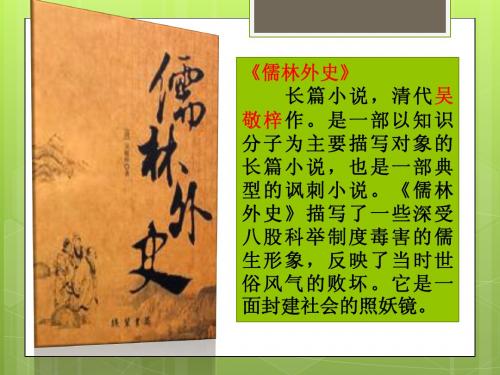 儒林外史
线装书局
《儒林外史》
长篇小说，清代吴
敬梓作。是一部以知识
分子为主要描写对象的
长篇小说，也是一部典
型的讽刺小说。《儒林
外史》描写了一些深受
八股科举制度毒害的儒
生形象，反映了当时世
俗风气的败坏。它是一
面封建社会的照妖镜。